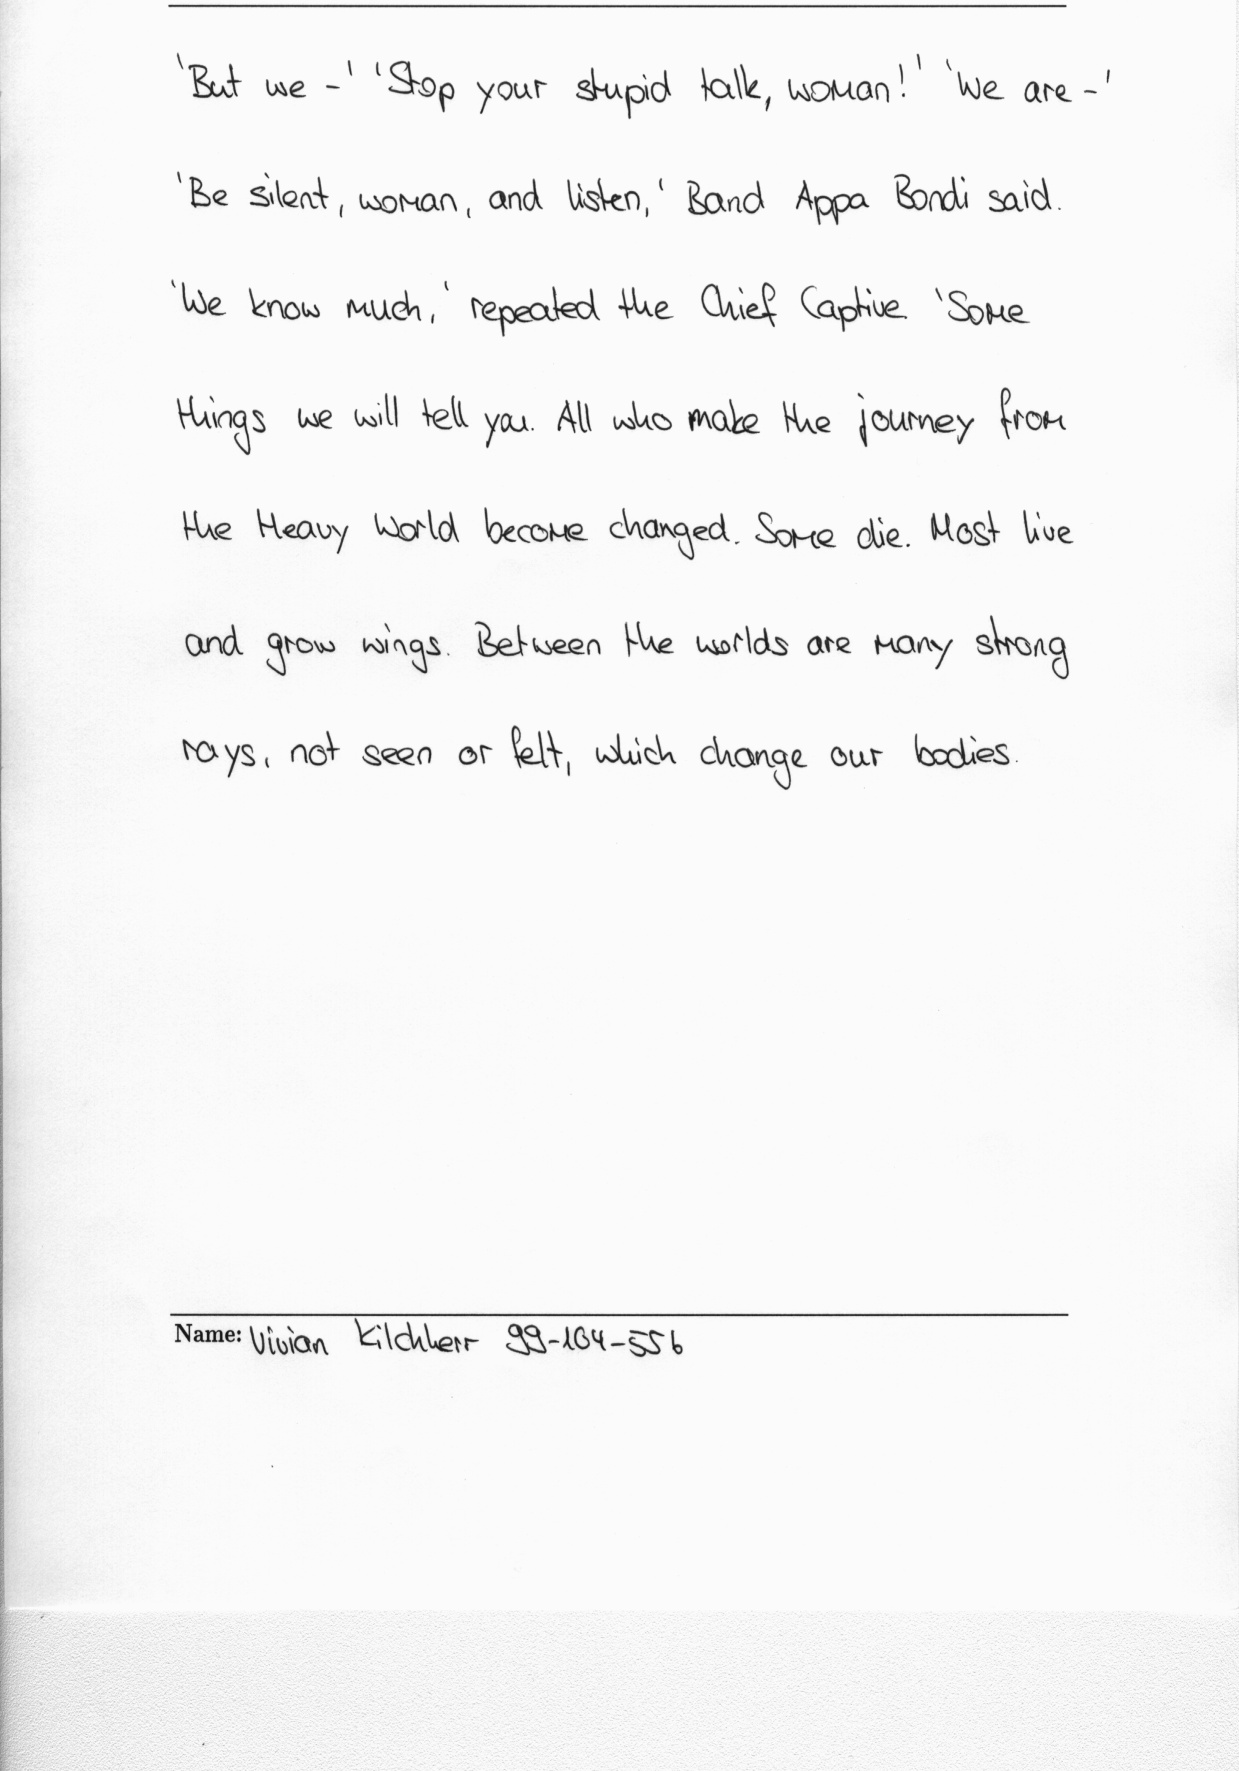 'But we -' 'Stop your stupid talk, woman!' 'We are -'
'Be silent, woman, and listen,' Band Appa Bondi said.
'We know much,' repeated the Chief Captive. 'Some
things we will tell you. All who make the journey from
the Heavy World become changed. Some die. Most live
and grow wings. Between the worlds are many strong
rays, not seen or felt, which change our bodies.
Name: Vivian Kilchherr 99-104-556